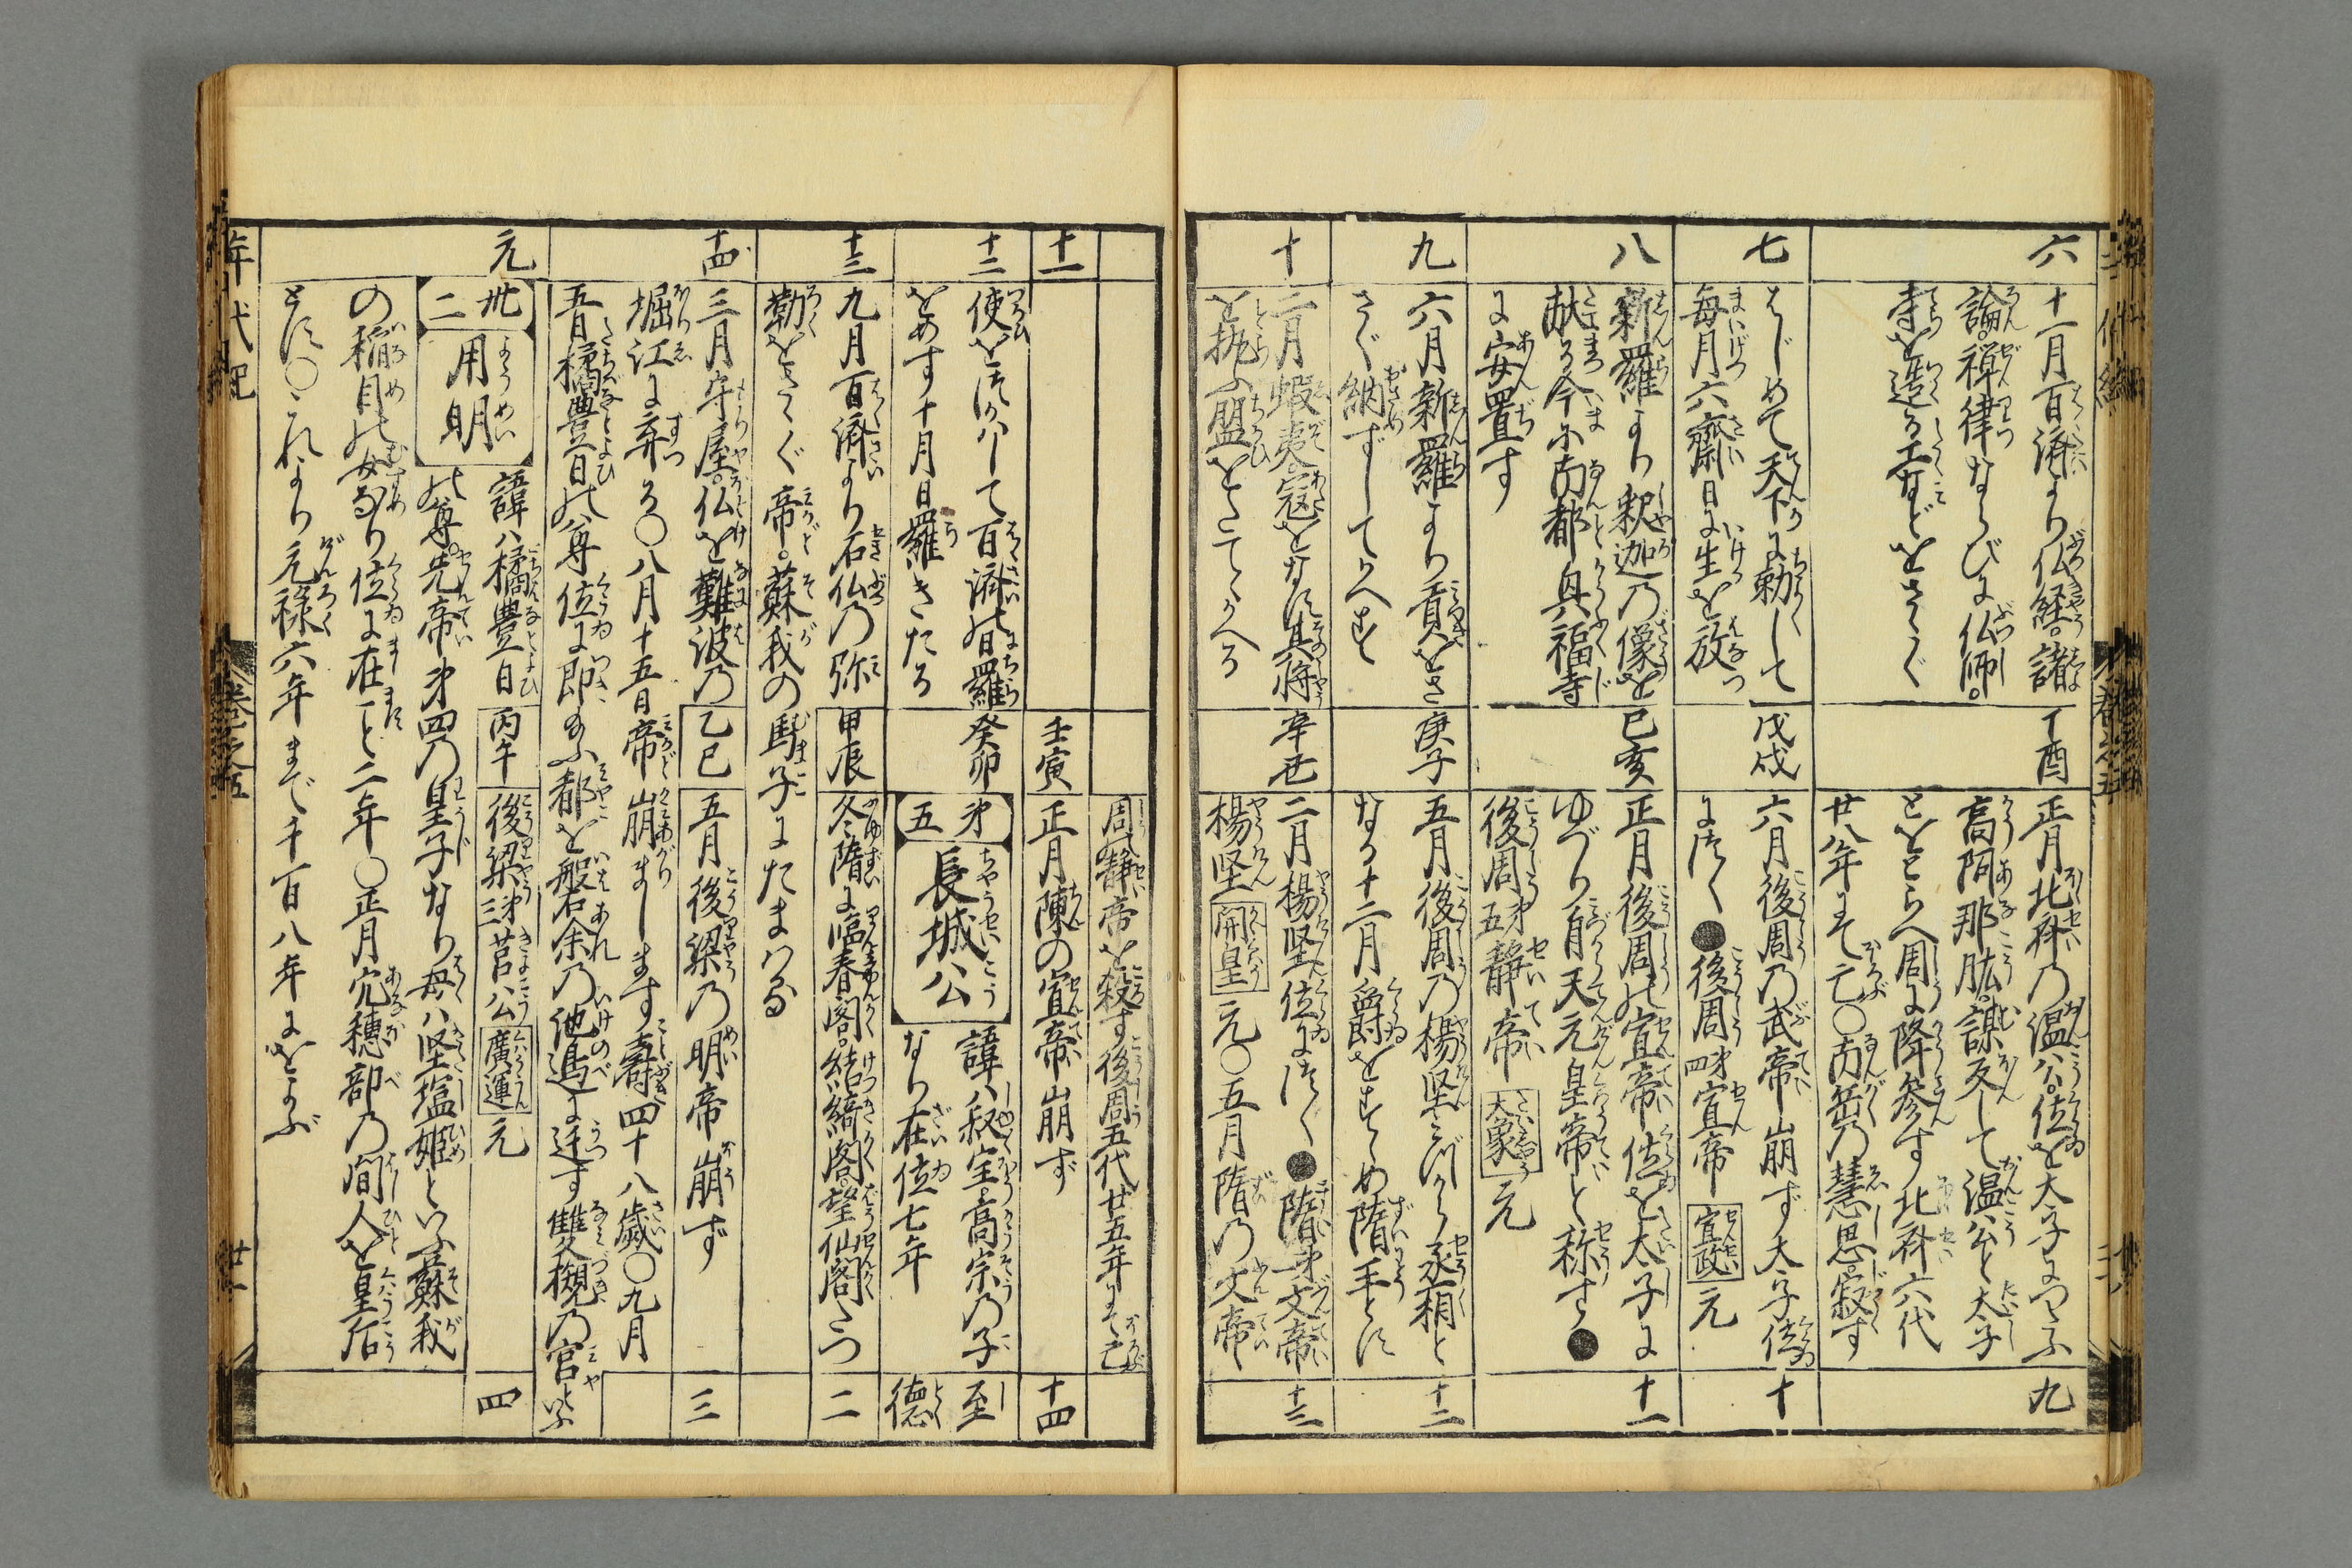 六
十一月百済より仏経。諸
論。禅律ならびに仏師。
寺を造る工などをさゝぐ
丁酉
正月北斉乃温公。位を太子につたふ
高阿那肱。謀反して温公と太子
とをとらへ周に降参す北斉六代
廿八年にて亡〇南岳乃慧思。寂す
九
七
はじめて天下に勅して
毎月六齋日に生を放つ
戊戌
六月後周乃武帝崩ず太子位
につく●後周第四宣帝 宣政元
十
八
新羅より釈迦乃像を
献る今に南都興福寺
に安置す
己亥
正月後周の宣帝位を太子に
ゆづり自天元皇帝と称す●
後周第五静帝 大象元
十一
九
六月新羅より貢をさ
さぐ納ずしてかへす
庚子
五月後周乃楊堅みづから丞相と
なる十二月爵をすゝめ隋王とす
十二
十
二月蝦夷。寇をなす其将
を執ふ盟をたてゝかへる
辛丑
二月楊堅位につく●隋第一文帝
楊堅 開皇元〇五月隋乃文帝
十三
周静帝を殺す後周五代廿五年にて亡
十一
壬寅
正月陳の宣帝崩ず
十四
十二
使をつかハして百済の日羅
をめす十月日羅きたる
癸卯
第五 長城公 諱ハ叔宝。高宗乃子
なり在位七年
至徳
十三
九月百済より石仏乃弥
勒をさゝぐ帝。蘇我の馬子にたまハる
甲辰
冬隋に臨春閣。結綺閣。望仙閣たつ
二
十四
三月守屋。仏を難波乃
堀江に弃る〇八月十五日帝崩まします寿四十八歳〇九月
五日橘豊日の尊位に即給ふ都を磐余乃池辺に迁す雙槻乃宮といふ
乙巳
五月後梁乃明帝崩ず
三
元
卅二 用明 諱ハ橘豊日
丙午
後梁第三莒公 廣運元
四
の尊。先帝第四乃皇子なり母ハ堅塩姫といふ蘇我
の稲目の女なり位に在こと二年〇正月穴穂部乃間人を皇后
とす〇これより元禄六年まで千百八年にをよぶ
年代記
巻之五
廿一